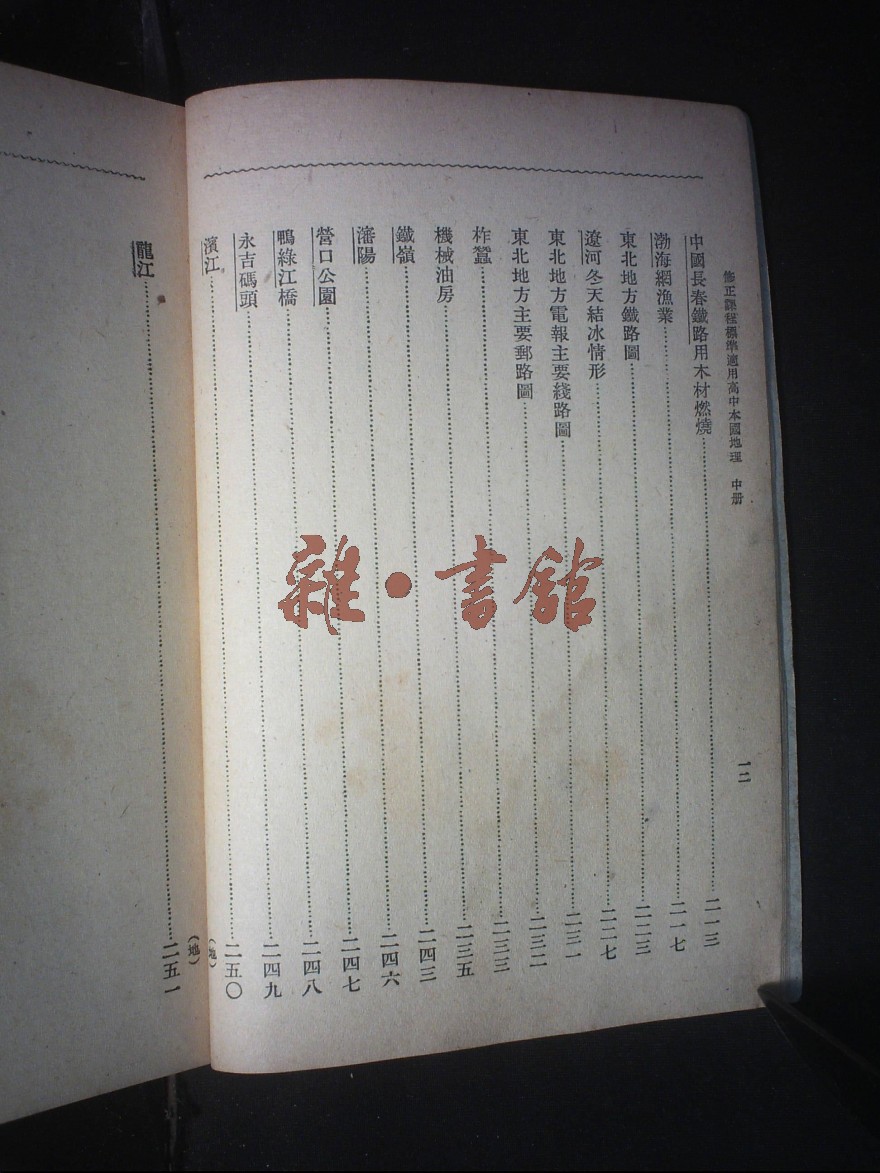 修正課程標準適用高中本國地理 中册 一二
中國長春鐵路用木材燃燒……二一三
渤海網漁業……二一七
東北地方鐵路圖……二二三
遼河冬天結冰情形……二二七
東北地方電報主要綫路圖……二三一
東北地方主要郵路圖……二三二
柞蠶……二三三
機械油房……二三五
鐵嶺……二四三
瀋陽……二四六
營口公園……二四七
鴨綠江橋……二四八
永吉碼頭……二四九
濱江……二五〇
(地)
(地)
龍江……二五一
雜·書館